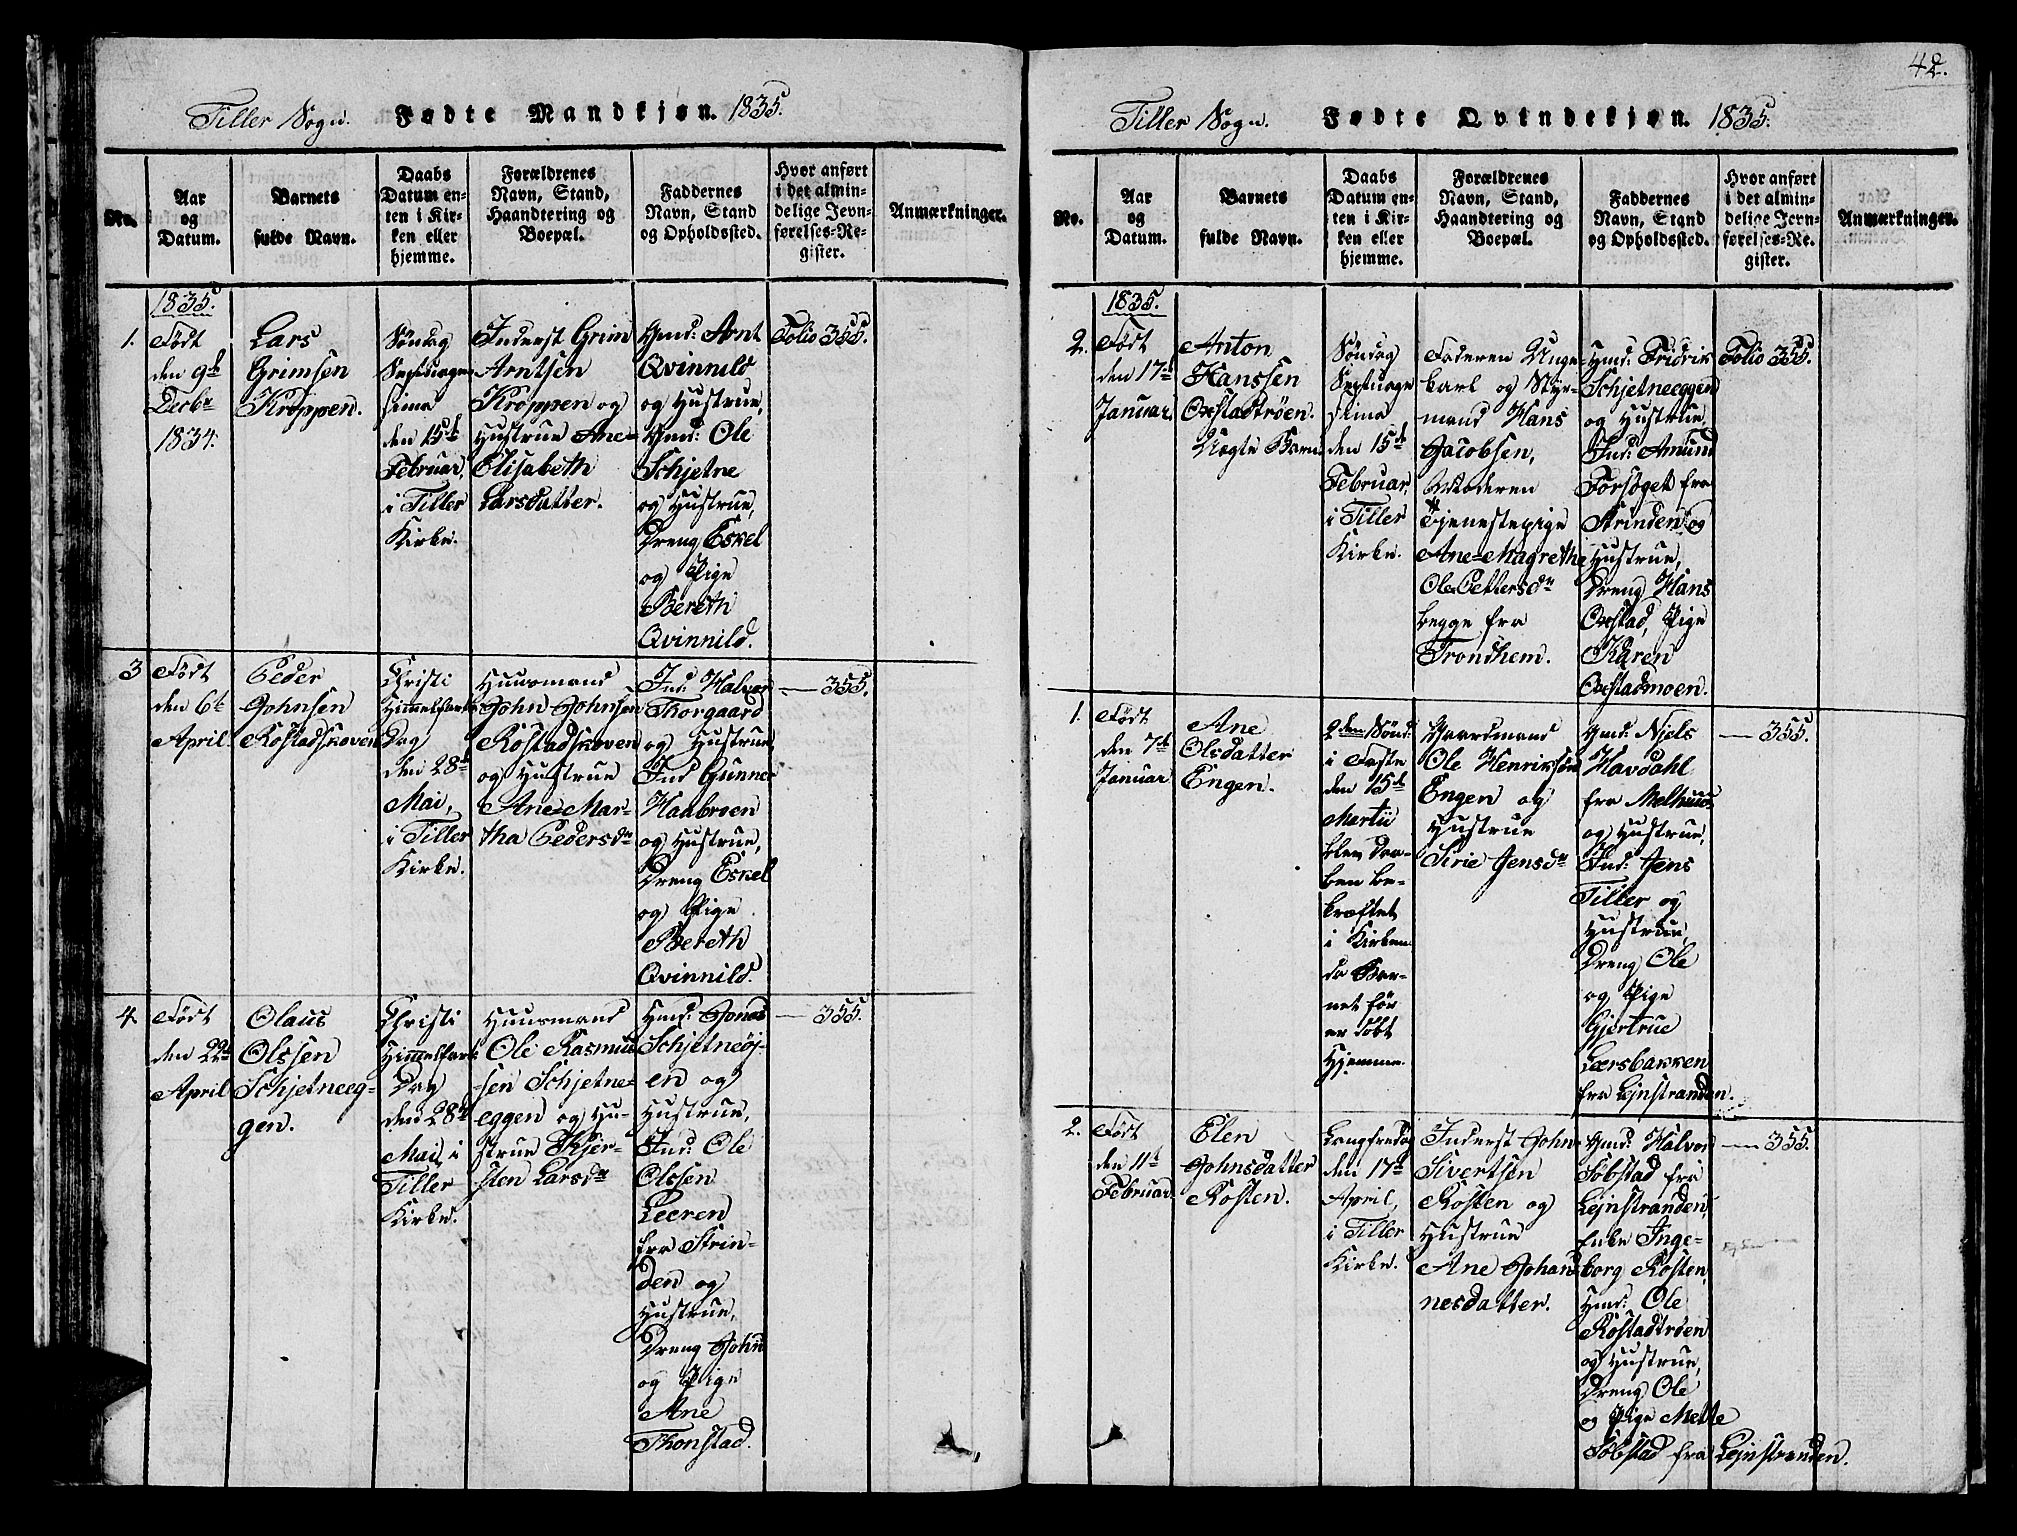 Tiller Sogn. Fødte Mandkjøn. 1835.
No.
Aar
og
Datum.
Barnets
fulde Navn.
Daabs
Datum en-
ten i Kir-
ken eller
hjemme.
Forældrenes
Navn, Stand,
Haandtering og
Boepæl.
Faddernes
Navn, Stand
og Opholdssted.
Hvor anført
i det almin-
delige Jevn-
førelses-Re-
gister.
Anmærkninger.
1835.
1.
Født
den 9de
Decbr
1834.
Lars
Grimsen
Krøppen.
Søndag
Septuage-
sima
den 15de
Februar,
i Tiller
Kirke.
Inderst Grim
Arntsen
Krøppen og
Hustrue Ane-
Elisabeth
Larsdatter.
Gmd: Arnt
Qvinnild
og Hustrue,
Gmd: Ole
Schjetne
og Hustrue,
Dreng Eskel
og Pige
Bereth
Qvinnild.
Folio 355.
3
Født
den 6te
April.
Peder
Johnsen
Røstadskoven
Christi
Himmelfarts
Dag
den 28de
Mai,
i Tiller
Kirke.
Huusmand
John Johnsen
Røstadskoven
og Hustrue
Ane-Mar-
tha Pedersdr
Ind: Halvor
Thorgaard
og Hustrue
Ind Gunner
Haabroen
og Hustrue,
Dreng Eskel
og Pige
Bereth
Qvinnild.
— 355.
4.
Født
den 22de
April
Olaus
Olssen
Schjetneeg-
gen.
Christi
Himmelfarts
Dag
den 28de
Mai, i
Tiller
Kirke.
Huusmand
Ole Rasmus-
sen Schjetne-
eggen og Hu-
strue Kjer-
sten Larsdr
Hmd: Jonas
Schjetneøj-
en og
Hustrue,
Ind: Ole
Olssen
Leeren
fra Strin-
den og
Hustrue,
Dreng John
og Pige
Ane
Thonstad.
— 355.
42.
Tiller Sogn. Fødte Qvindekjøn. 1835.
No.
Aar
og
Datum.
Barnets
fulde Navn.
Daabs
Datum en-
ten i Kir-
ken eller
hjemme.
Forældrenes
Navn, Stand,
Haandtering og
Boepæl.
Faddernes
Navn, Stand
og Opholdssted.
Hvor anført
i det almin-
delige Jevn-
førelses-Re-
gister.
Anmærkninger.
1835.
2.
Født
den 17de
Januar.
Anton
Hanssen
Oxstadtrøen.
Uægte Barn.
Søndag
Septuage
sima
den 15de
Februar,
i Tiller
Kirke.
Faderen Unge-
karl og Styr-
mand Hans
Jacobsen,
Moderen
Tjenestepige
Ane-Magrethe
Ole Pettersdr
begge fra
Trondhem.
Hmd: Fridrik
Schjetneeggen
og Hustrue,
Ind: Amund
Forsøget fra
Strinden og
Hustrue,
Dreng Hans
Oxstad, Pige
Karen
Oxstadmoen.
Folio 355.
1.
Født
den 7de
Januar
Ane
Olsdatter
Engen.
2den Sønd:
i Faste
den 15de
Martii
blev Daa-
ben be-
kræftet
i Kirken
da Bar-
net før
er døbt
Hjemme.
Gaardmand
Ole Henriksøn
Engen og
Hustrue
Sirie Jensdr
Gmd: Niels
Havdahl
fra Melhuus
og Hustrue,
Ind: Jens
Tiller og
Hustrue,
Dreng Ole
og Pige
Gjertrue
Leersbakken
fra Lejnstranden.
— 355.
2.
Født
den 11te
Februar.
Elen
Johnsdatter
Røsten.
Langfredag
den 17de
April,
i Tiller
Kirke.
Inderst John
Sivertsen
Røsten og
Hustrue
Ane Johan-
nesdatter.
Gmd: Halvor
Søbstad fra
Lejnstranden,
Enke Inge-
borg Røsten,
Hmd: Ole
Røstadtrøen
og Hustrue,
Dreng Ole
og Pige Mette
Søbstad fra Lejnstranden.
— 355.